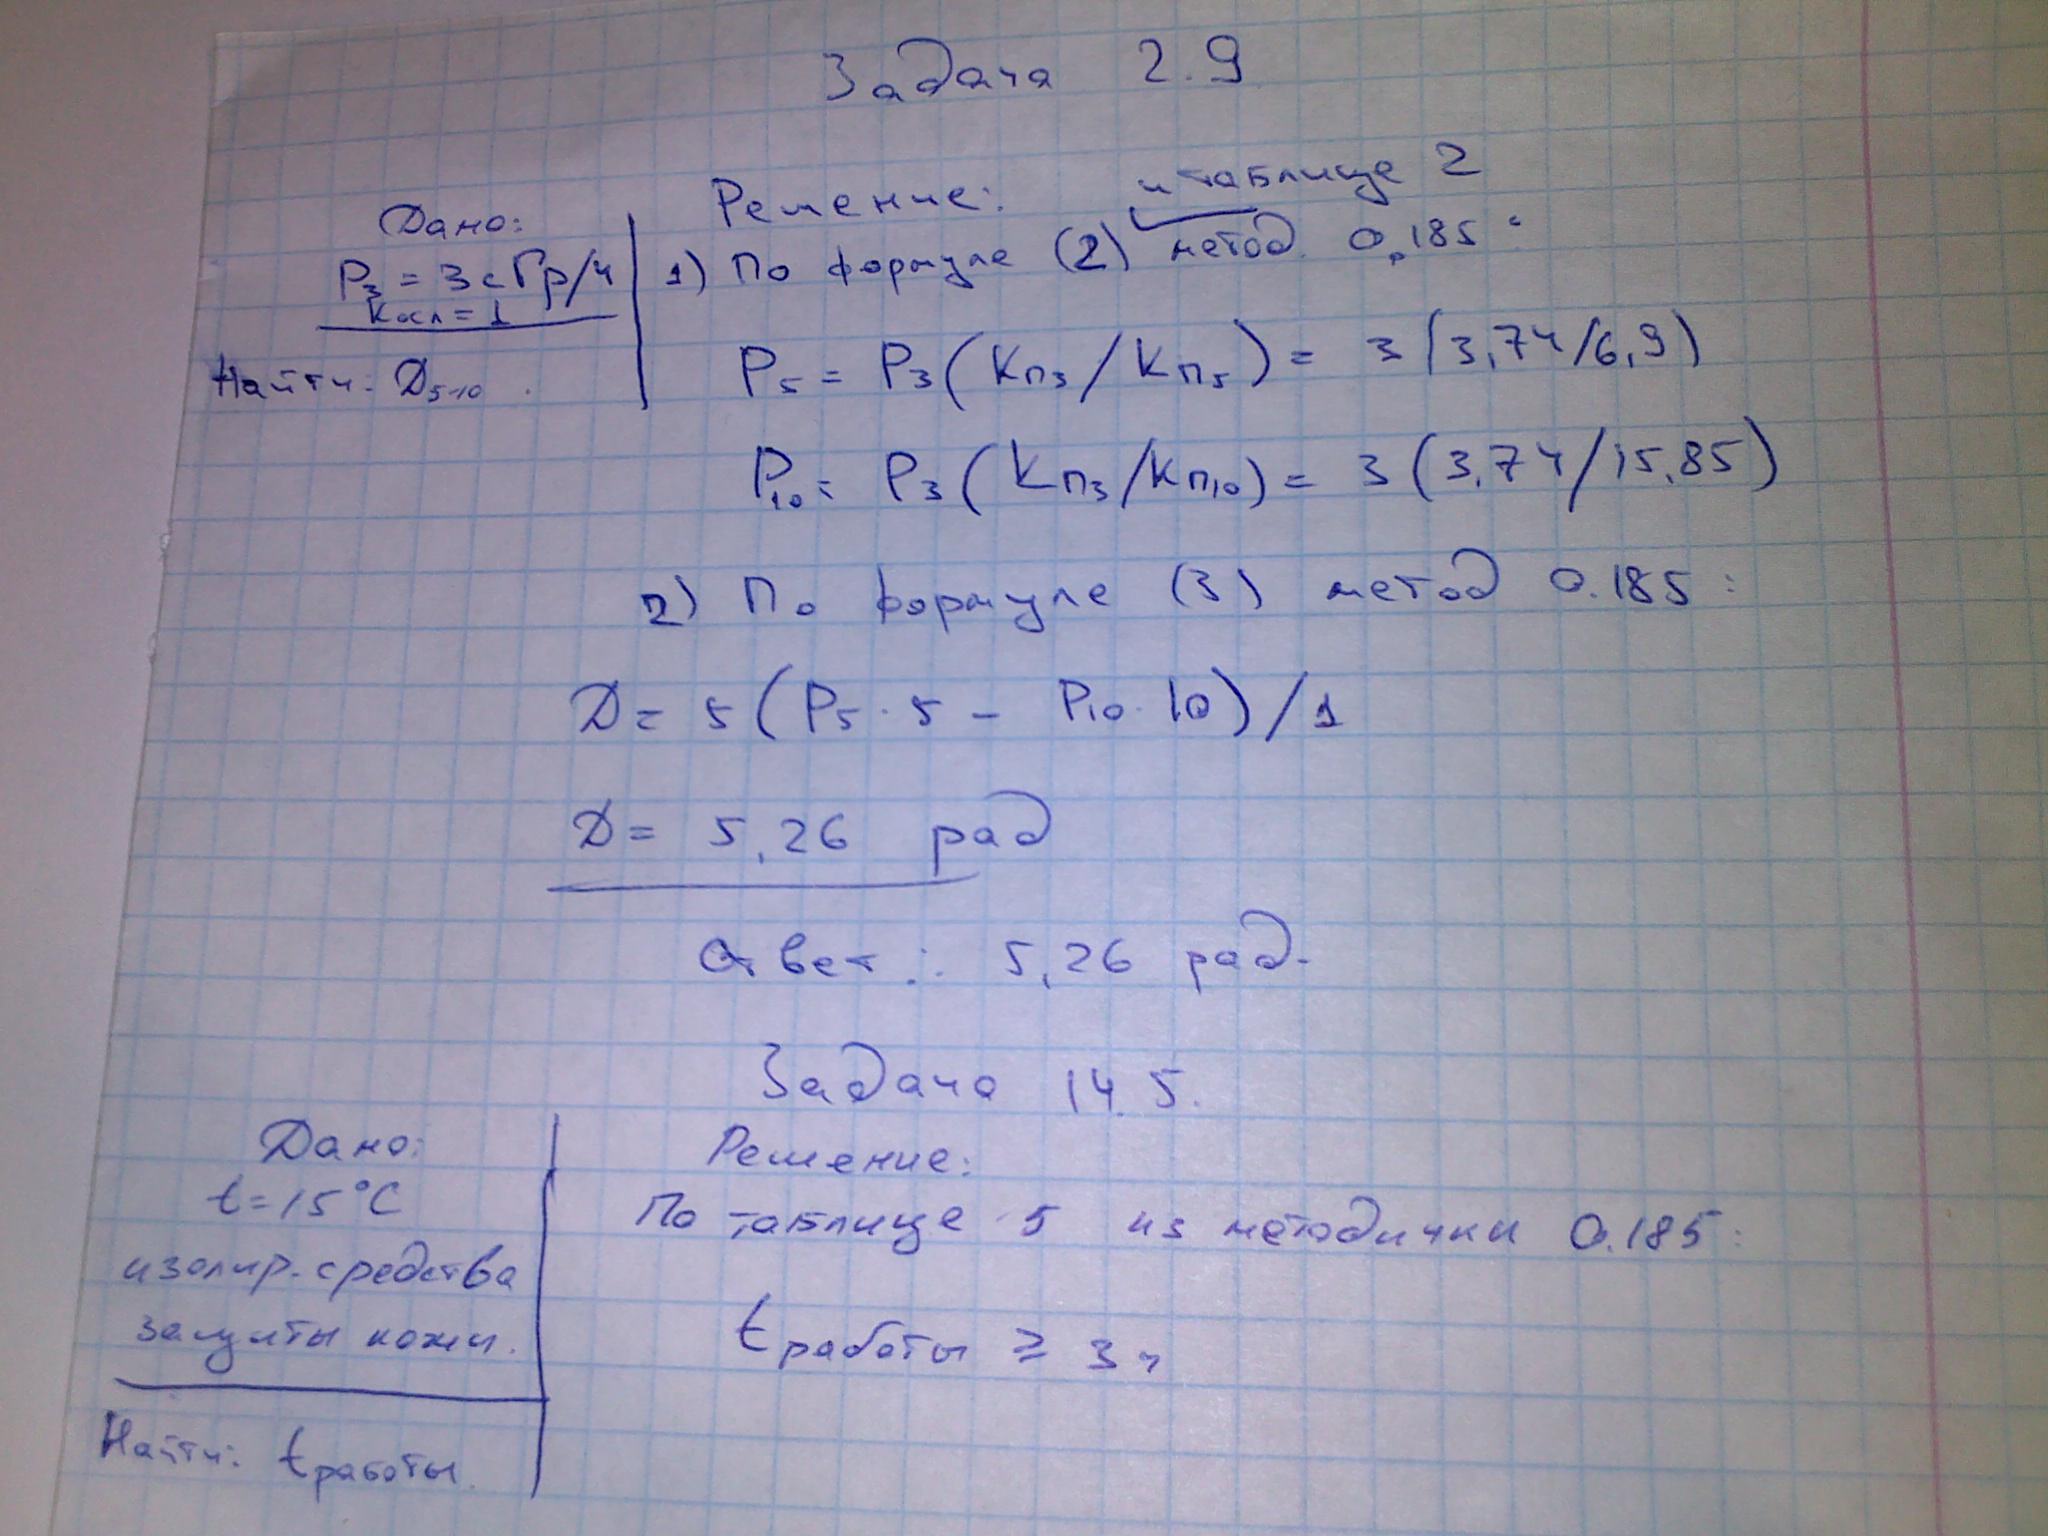 Задача 2.9
Дано:
P₃ = 3 сГр/ч
Kосл = 1
Найти: D₅₋₁₀.
Решение:
и таблице 2
1) По формуле (2) метод. 0.185:
P₅ = P₃(Kп₃/Kп₅) = 3(3,74/6,9)
P₁₀ = P₃(Kп₃/Kп₁₀) = 3(3,74/15,85)
2) По формуле (3) метод 0.185:
D = 5(P₅·5 - P₁₀·10)/1
D = 5,26 рад
Ответ: 5,26 рад.
Задача 14.5.
Дано:
t=15°C
изолир. средства
защиты кожи.
Найти: tработы.
Решение:
По таблице 5 из методички 0.185:
tработы ≥ 3 ч